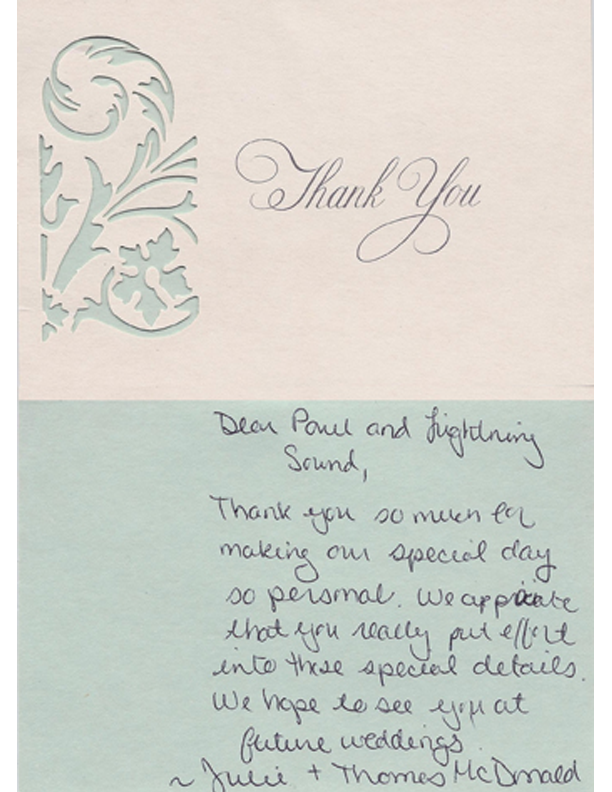 Thank You
Dear Paul and Lightning
Sound,
Thank you so much for
making our special day
so personal. We appriciate
that you really put effort
into those special details.
We hope to see you at
future weddings.
~ Julie + Thomas McDonald